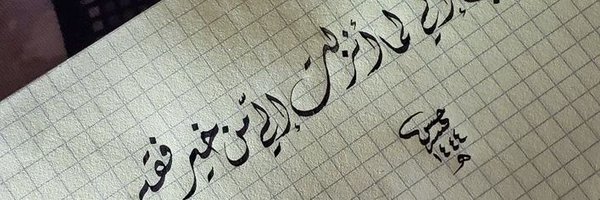 إني لما أنزلت إلي من خير فقير
١٤٤٤ هـ